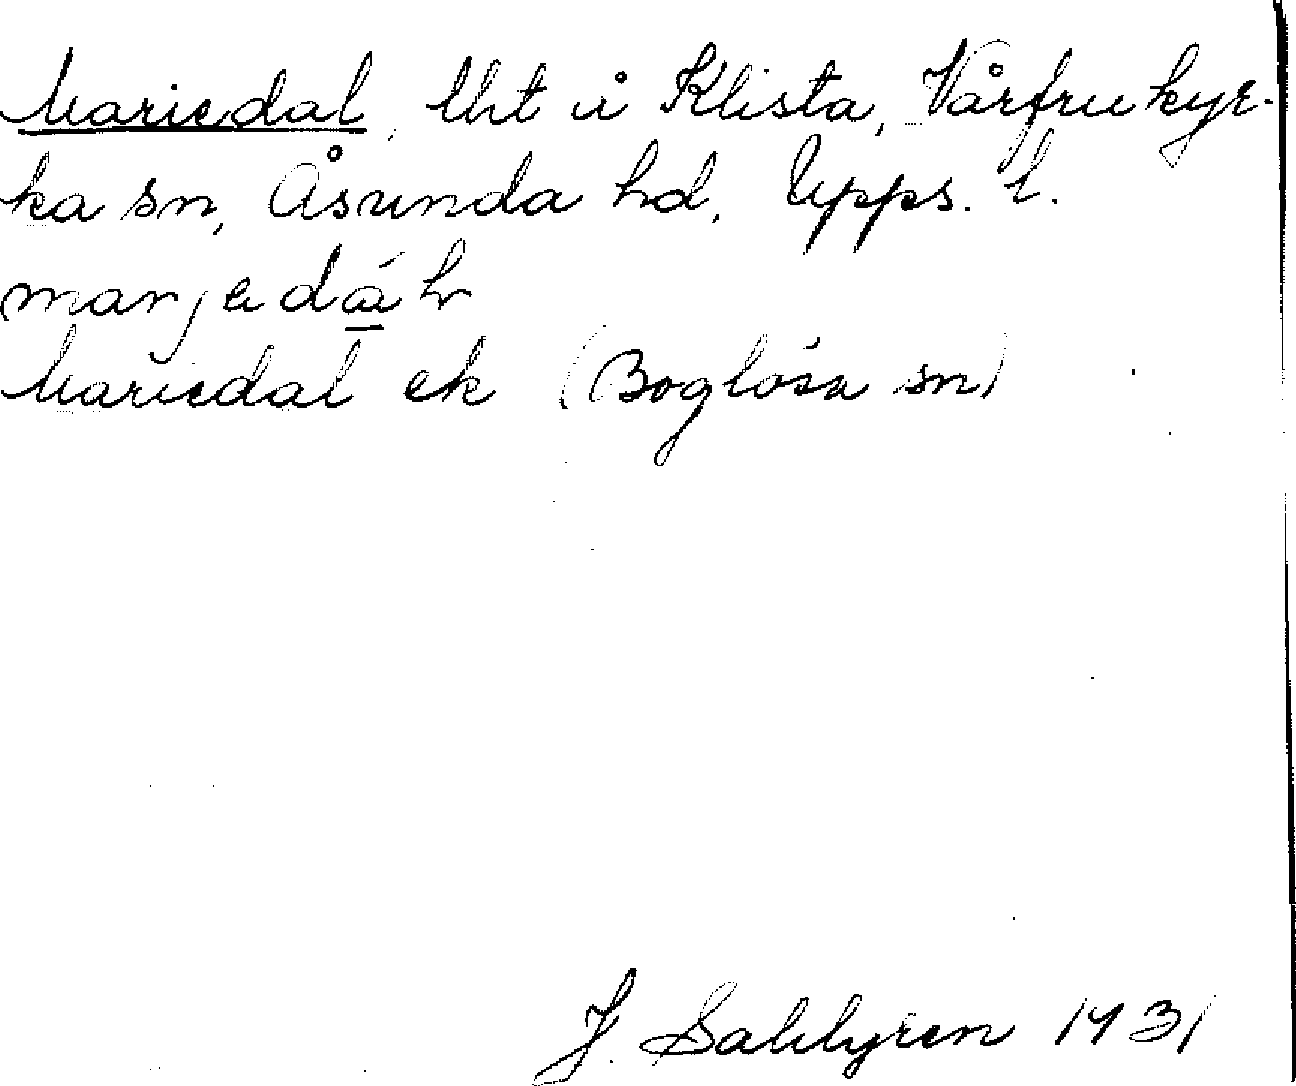 Mariedal, lht å Klista, Vårfrukyr-
ka sn, Åsunda hd, Upps. l.
Mariedal ek (Boglösa sn)
J. Sahlgren 1931